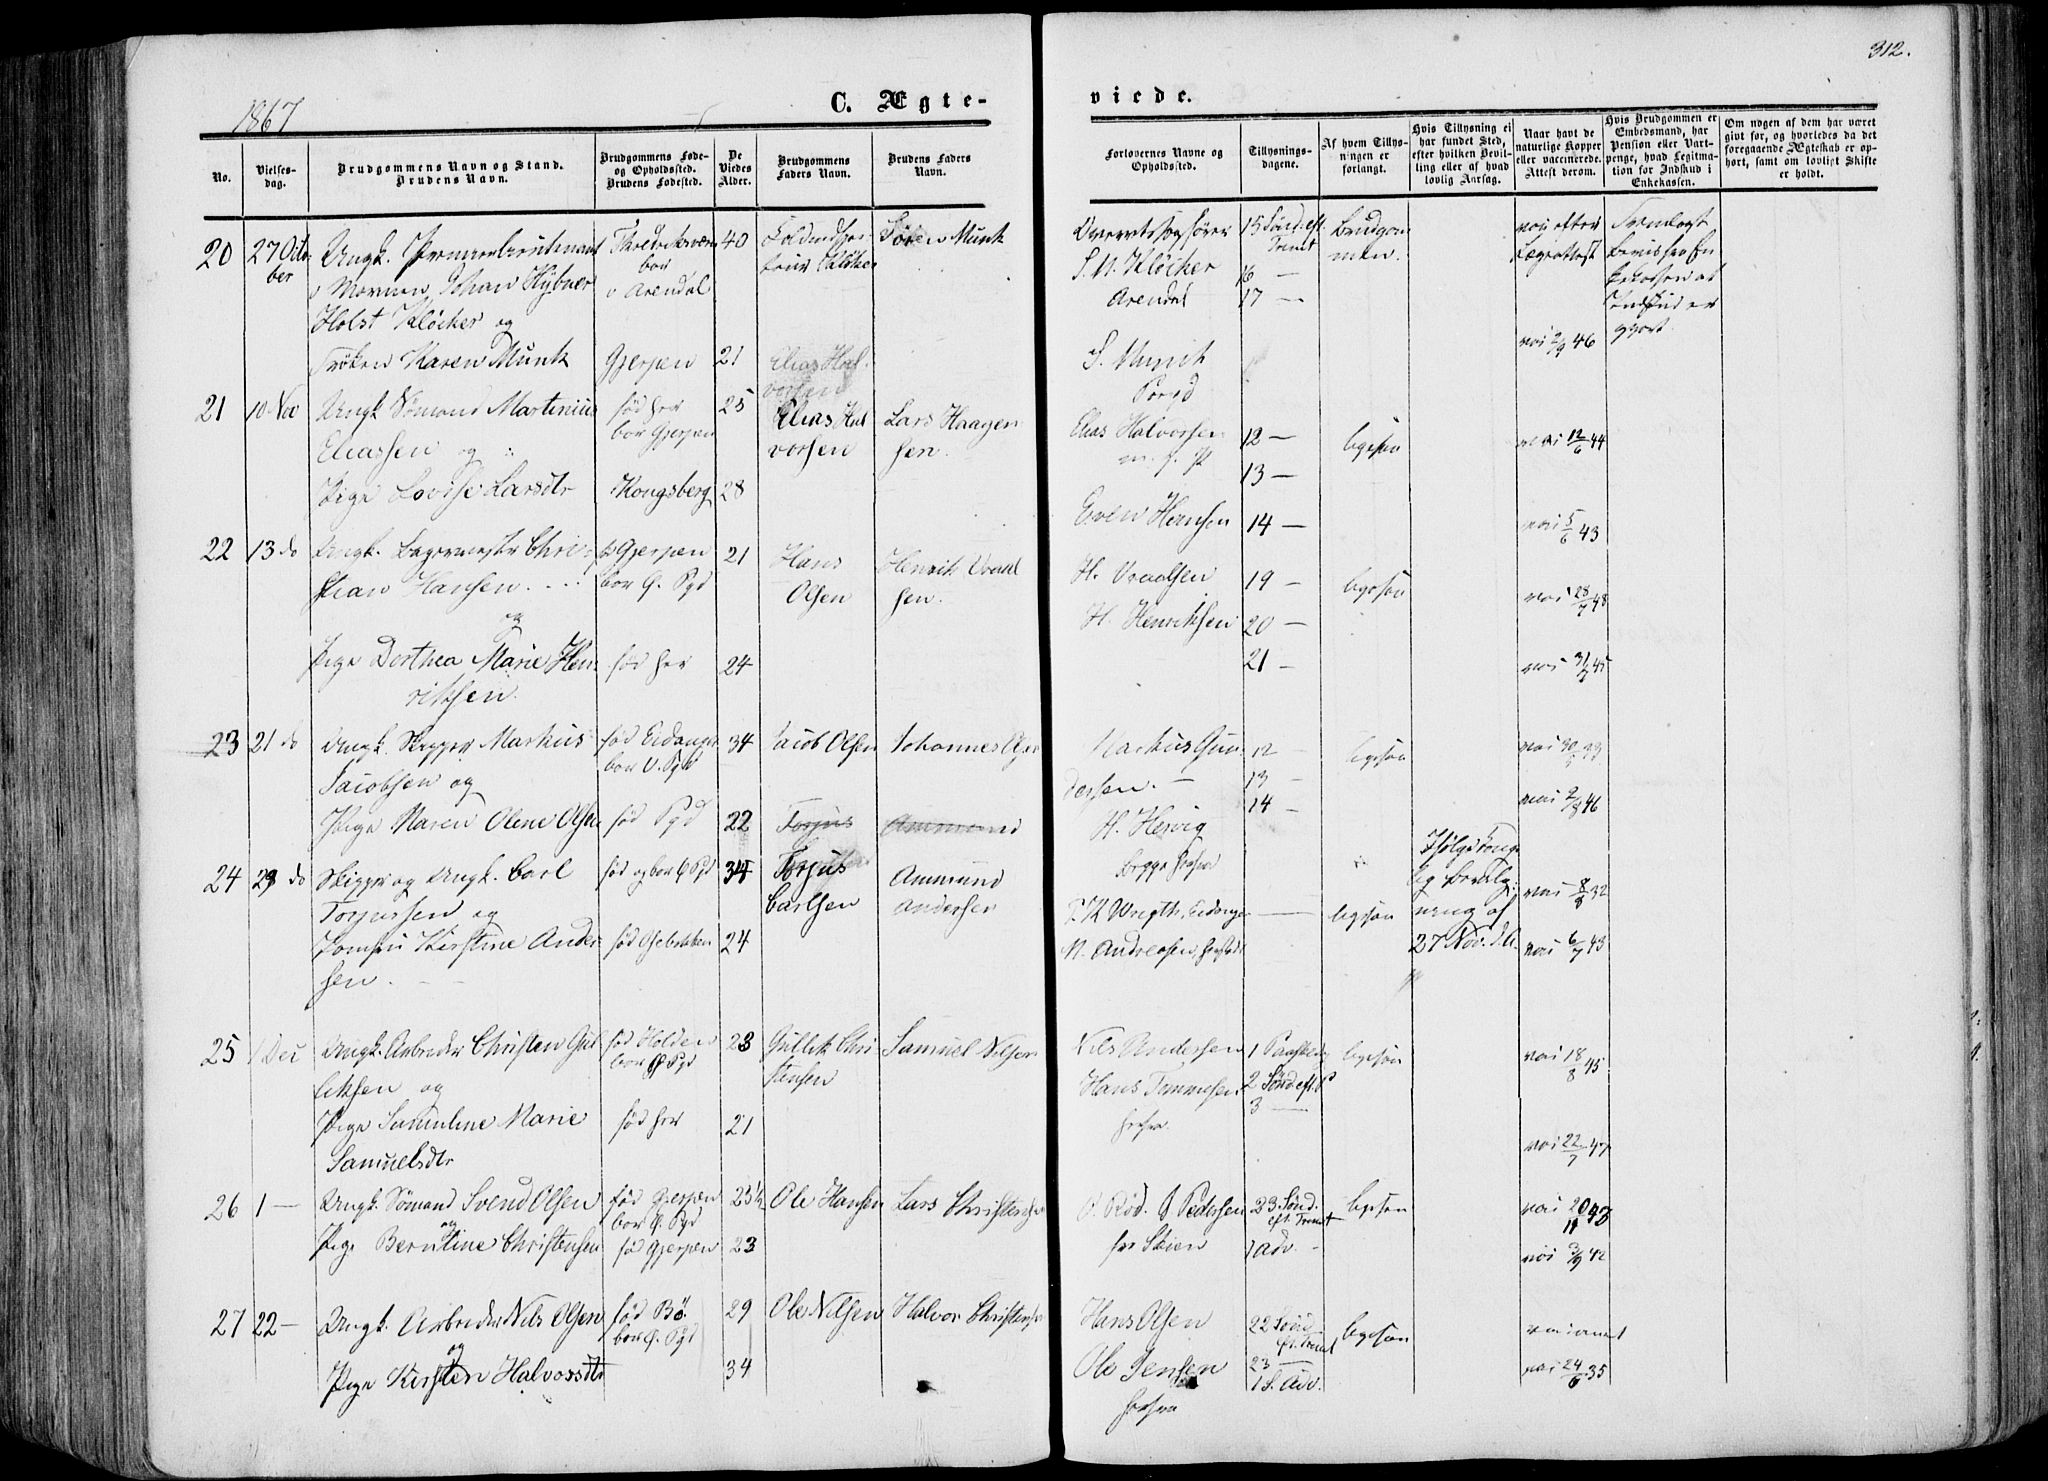 312.
1867
C. Ægte-
viede.
No.
Vielses-
dag.
Brudgommens Navn og Stand.
Brudens Navn.
Brudgommens Føde-
og Opholdssted.
Brudens Fødested.
De
Viedes
Alder.
Brudgommens
Faders Navn.
Brudens Faders
Navn.
Forlovernes Navne og
Opholdssted.
Tillysnings-
dagene.
Af hvem Tillys-
ningen er
forlangt.
Hvis Tillysning ei
har fundet Sted,
efter hvilken Bevil-
ling eller af hvad
lovlig Aarsag.
Naar havt de
naturlige Kopper
eller vaccinerede.
Attest derom.
Hvis Brudgommen er
Embedsmand, har
Pension eller Vart-
penge, hvad Legitima-
tion for Indskud i
Enkekassen.
Om nogen af dem har været
givt før, og hvorledes da det
foregaaende Ægteskab er op-
hørt, samt om lovligt Skifte
er holdt.
20
27 Octo
ber
Ungk. Premierlieutenant
i Marinen Johan Hybner
Holst Kløcker og
Frøken Karen Munk
bor
i Arendal
Gjerpen
40
21
Kløcker
Søren Munk
S. N. Kløcker
Arendal
S. Munk
Porsgd
15 Sønd. eft.
Trinit
16 —
17 —
Brudgom
men.
vac 2/9 46
21
10 Nov
Ungk Sømand Martinius
Eliassen og
Pige Lovise Larsdtr
født her
bor Gjerpen
Kongsberg
25
28
Elias Hal-
vorsen
Elias Hal
vorsen
Lars Haagen
sen.
Elias Halvorsen
Even Hansen
12 —
13 —
14 —
ligesaa
vac 12/6 44
vac 5/6 43
22
13 do
Ungk. Bagermester Chri-
stian Hansen.
og
Pige Dorthea Marie Hen-
riksen.
Gjerpen
bor Ø. Pgd
fød her
21
24
Hans
Olsen
Henrik Vraal
sen.
H. Vraalsen
H. Henriksen
19 —
20 —
21 —
ligesaa
vac 28/7 48
vac 45
23
21 do
Ungk. Skipper Markus
Jacobsen og
Pige Maren Oline Olsen
fød Eidanger
bor V. Pgd
fød Pgd
34
22
Jacob Olsen
Torjus
Johannes
Ammund
Markus Gun
dersen. —
H. Hesvig
begge herfra
12 —
13 —
14 —
ligesaa
vac 46
24
29 do
Skipper og Ungk. Carl
Torjussen og
Jomfru Kirstine Ander
sen.
fød og bor Ø Pgd
fød Osebakken
34
24
Torjus
Carlsen
Ammund
Andersen
Wrigth, Eidanger
N. Andreasen, herfra
ligesaa
Ifølge konge
lig Bevilg-
ning af
27 Nov. d. A.
vac 8/8 32
vac 6/7 43
25
1 Dec
Ungk. Arbeider Christen Gul
liksen og
Pige Samueline Marie
Samuelsdtr
fød Holden
bor Ø Pgd
fød her
23
21
Gullik Chri
stensen
Samuel Nilsen
Nils Andersen
Hans Tommesen
herfra.
2 Sønd eft.
3 —
ligesaa
vac 18/8 45
vac 22/7 47
26
1 —
Ungk. Sømand Svend Olsen
og
Pige Berntine Christensen
fød Gjerpen
bor Ø. Pgd
fød Gjerpen
23½
23
Ole Hansen
Lars Christensen
O. Rød. J Pedersen
Skien
23. Sønd.
eft. Trinit
1 Adv. -
ligesaa
vac 20/11 43
vac 3/9 42
27
22 —
Ungk. Arbeider Nils Olsen
og
Pige Kirsten Halvorsdtr
fød Bø
bor Ø. Pgd
29
34
Ole Nilsen
Halvor Christensen
Hans Olsen
Ole Jensen
herfra
22 Sønd
eft. Trinit
23 —
1 S. Adv.
ligesaa
vac 24/6 35